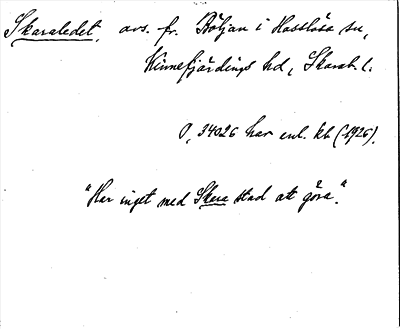 Skaraledet, avs. fr. Böljan i Hasslösa sn,
Kinnefjärdings hd, Skarab. l.
O, 34026 har enl. kb (1926).
"Har inget med Skara stad att göra".